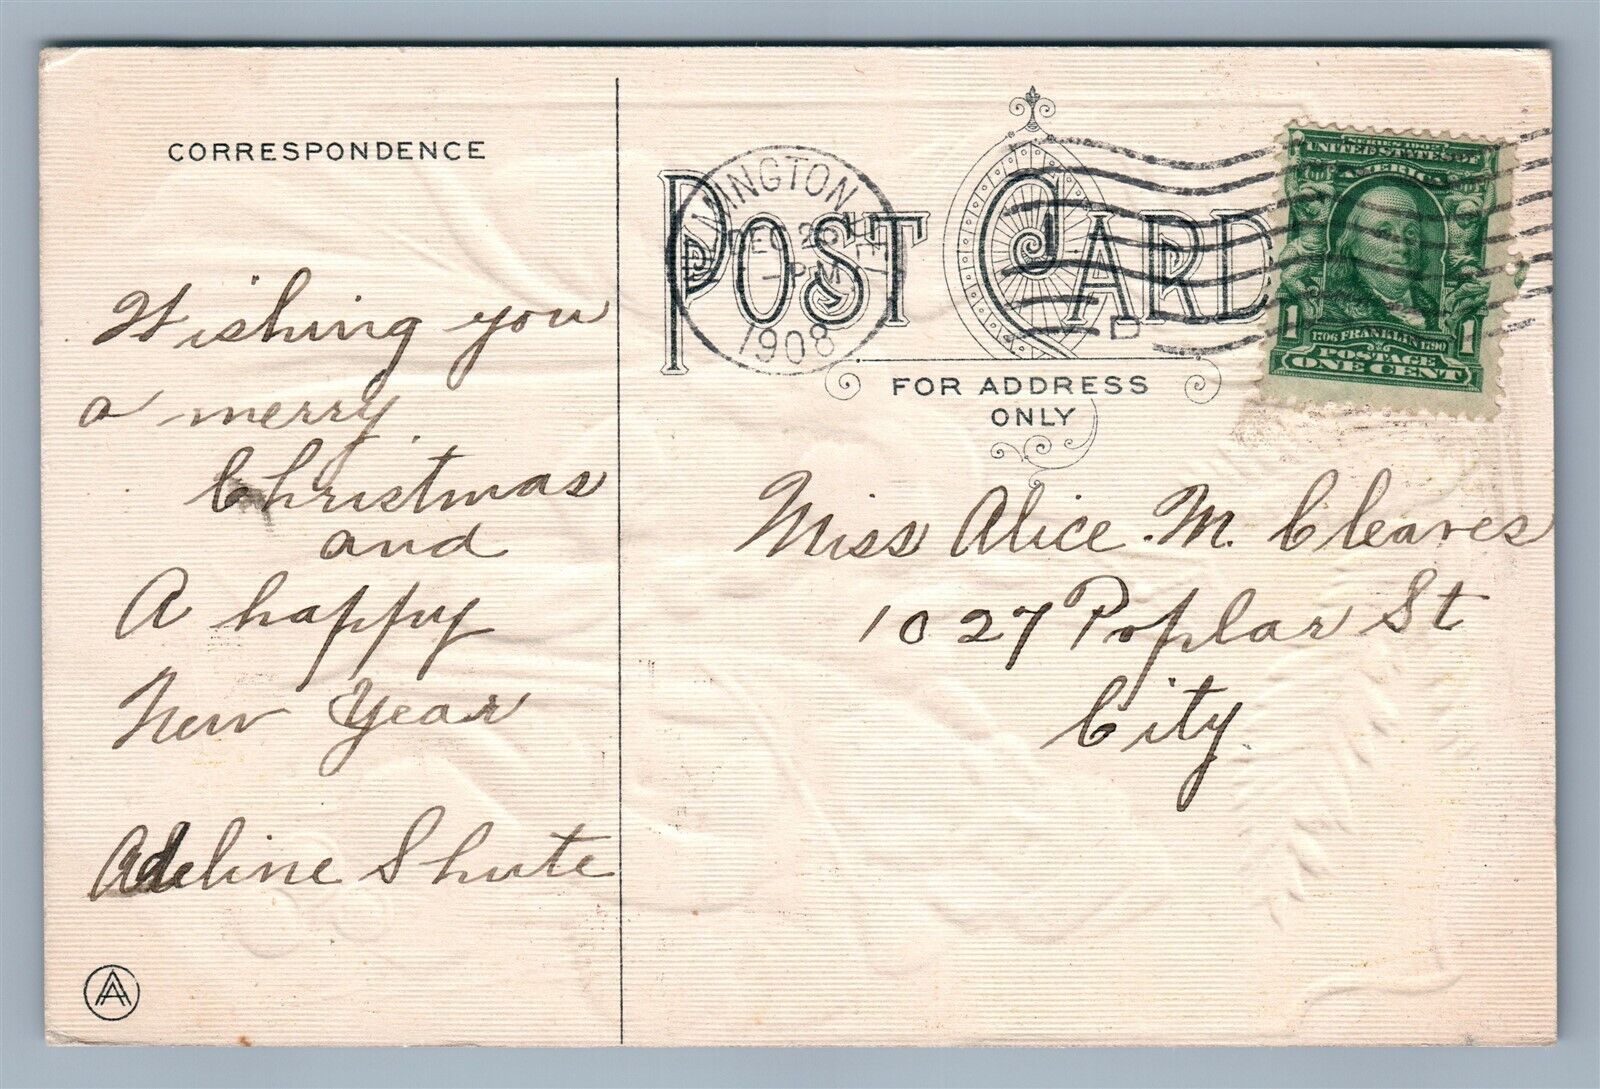 CORRESPONDENCE
Wishing you
a merry
Christmas
and
A happy
New Year
Adeline Shute
POST CARD
FOR ADDRESS
ONLY
MINGTON
DEC 2
PM
1908
D
SERIES 1902
UNITED STATES OF
AMERICA
1706 FRANKLIN 1790
1 POSTAGE 1
ONE CENT
Miss Alice. M. Cleaves
1027 Poplar St
City.
AA